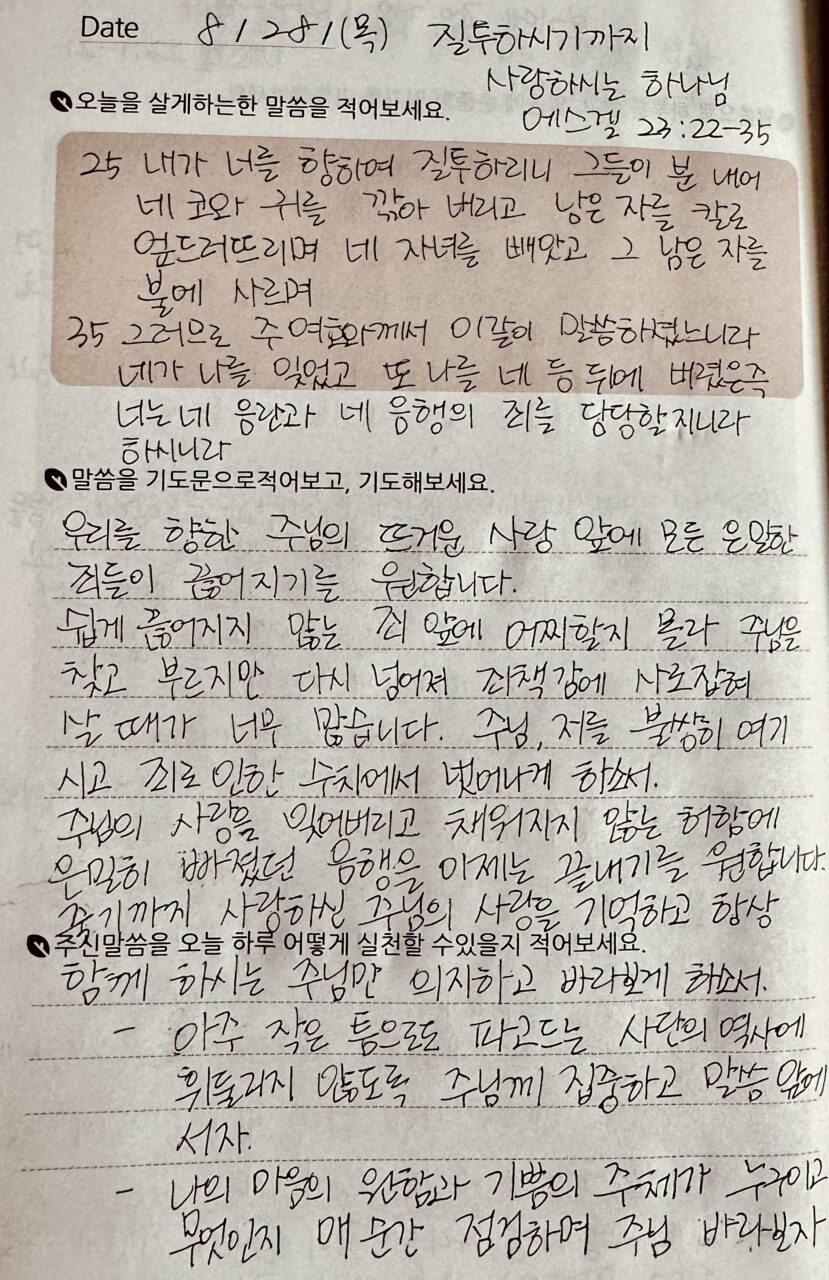 Date 8 / 28 / (목) 질투하시기까지
사랑하시는 하나님
에스겔 23:22-35
오늘을 살게하는한 말씀을 적어보세요.
25 내가 너를 향하여 질투하리니 그들이 분 내어
네 코와 귀를 깎아 버리고 남은 자를 칼로
엎드러뜨리며 네 자녀를 빼앗고 그 남은 자를
불에 사르며
35 그러므로 주 여호와께서 이같이 말씀하셨느니라
네가 나를 잊었고 또 나를 네 등 뒤에 버렸은즉
너는 네 음란과 네 음행의 죄를 당당할지니라
하시니라
말씀을 기도문으로적어보고, 기도해보세요.
우리를 향한 주님의 뜨거운 사랑 앞에 모든 은밀한
죄들이 끊어지기를 원합니다.
쉽게 끊어지지 않는 죄 앞에 어찌할지 몰라 주님을
찾고 부르지만 다시 넘어져 죄책감에 사로잡혀
살 때가 너무 많습니다. 주님, 저를 불쌍히 여기
시고 죄로 인한 수치에서 벗어나게 하소서.
주님의 사랑을 잊어버리고 채워지지 않는 허함에
은밀히 빠졌던 음행을 이제는 끝내기를 원합니다.
죽기까지 사랑하신 주님의 사랑을 기억하고 항상
주신말씀을 오늘 하루 어떻게 실천할 수있을지 적어보세요.
함께 하시는 주님만 의지하고 바라보게 하소서.
- 아주 작은 틈으로도 파고드는 사단의 역사에
휘둘리지 않도록 주님께 집중하고 말씀 앞에
서자.
- 나의 마음의 원함과 기쁨의 주체가 누구이고
무엇인지 매 순간 점검하며 주님 바라보자